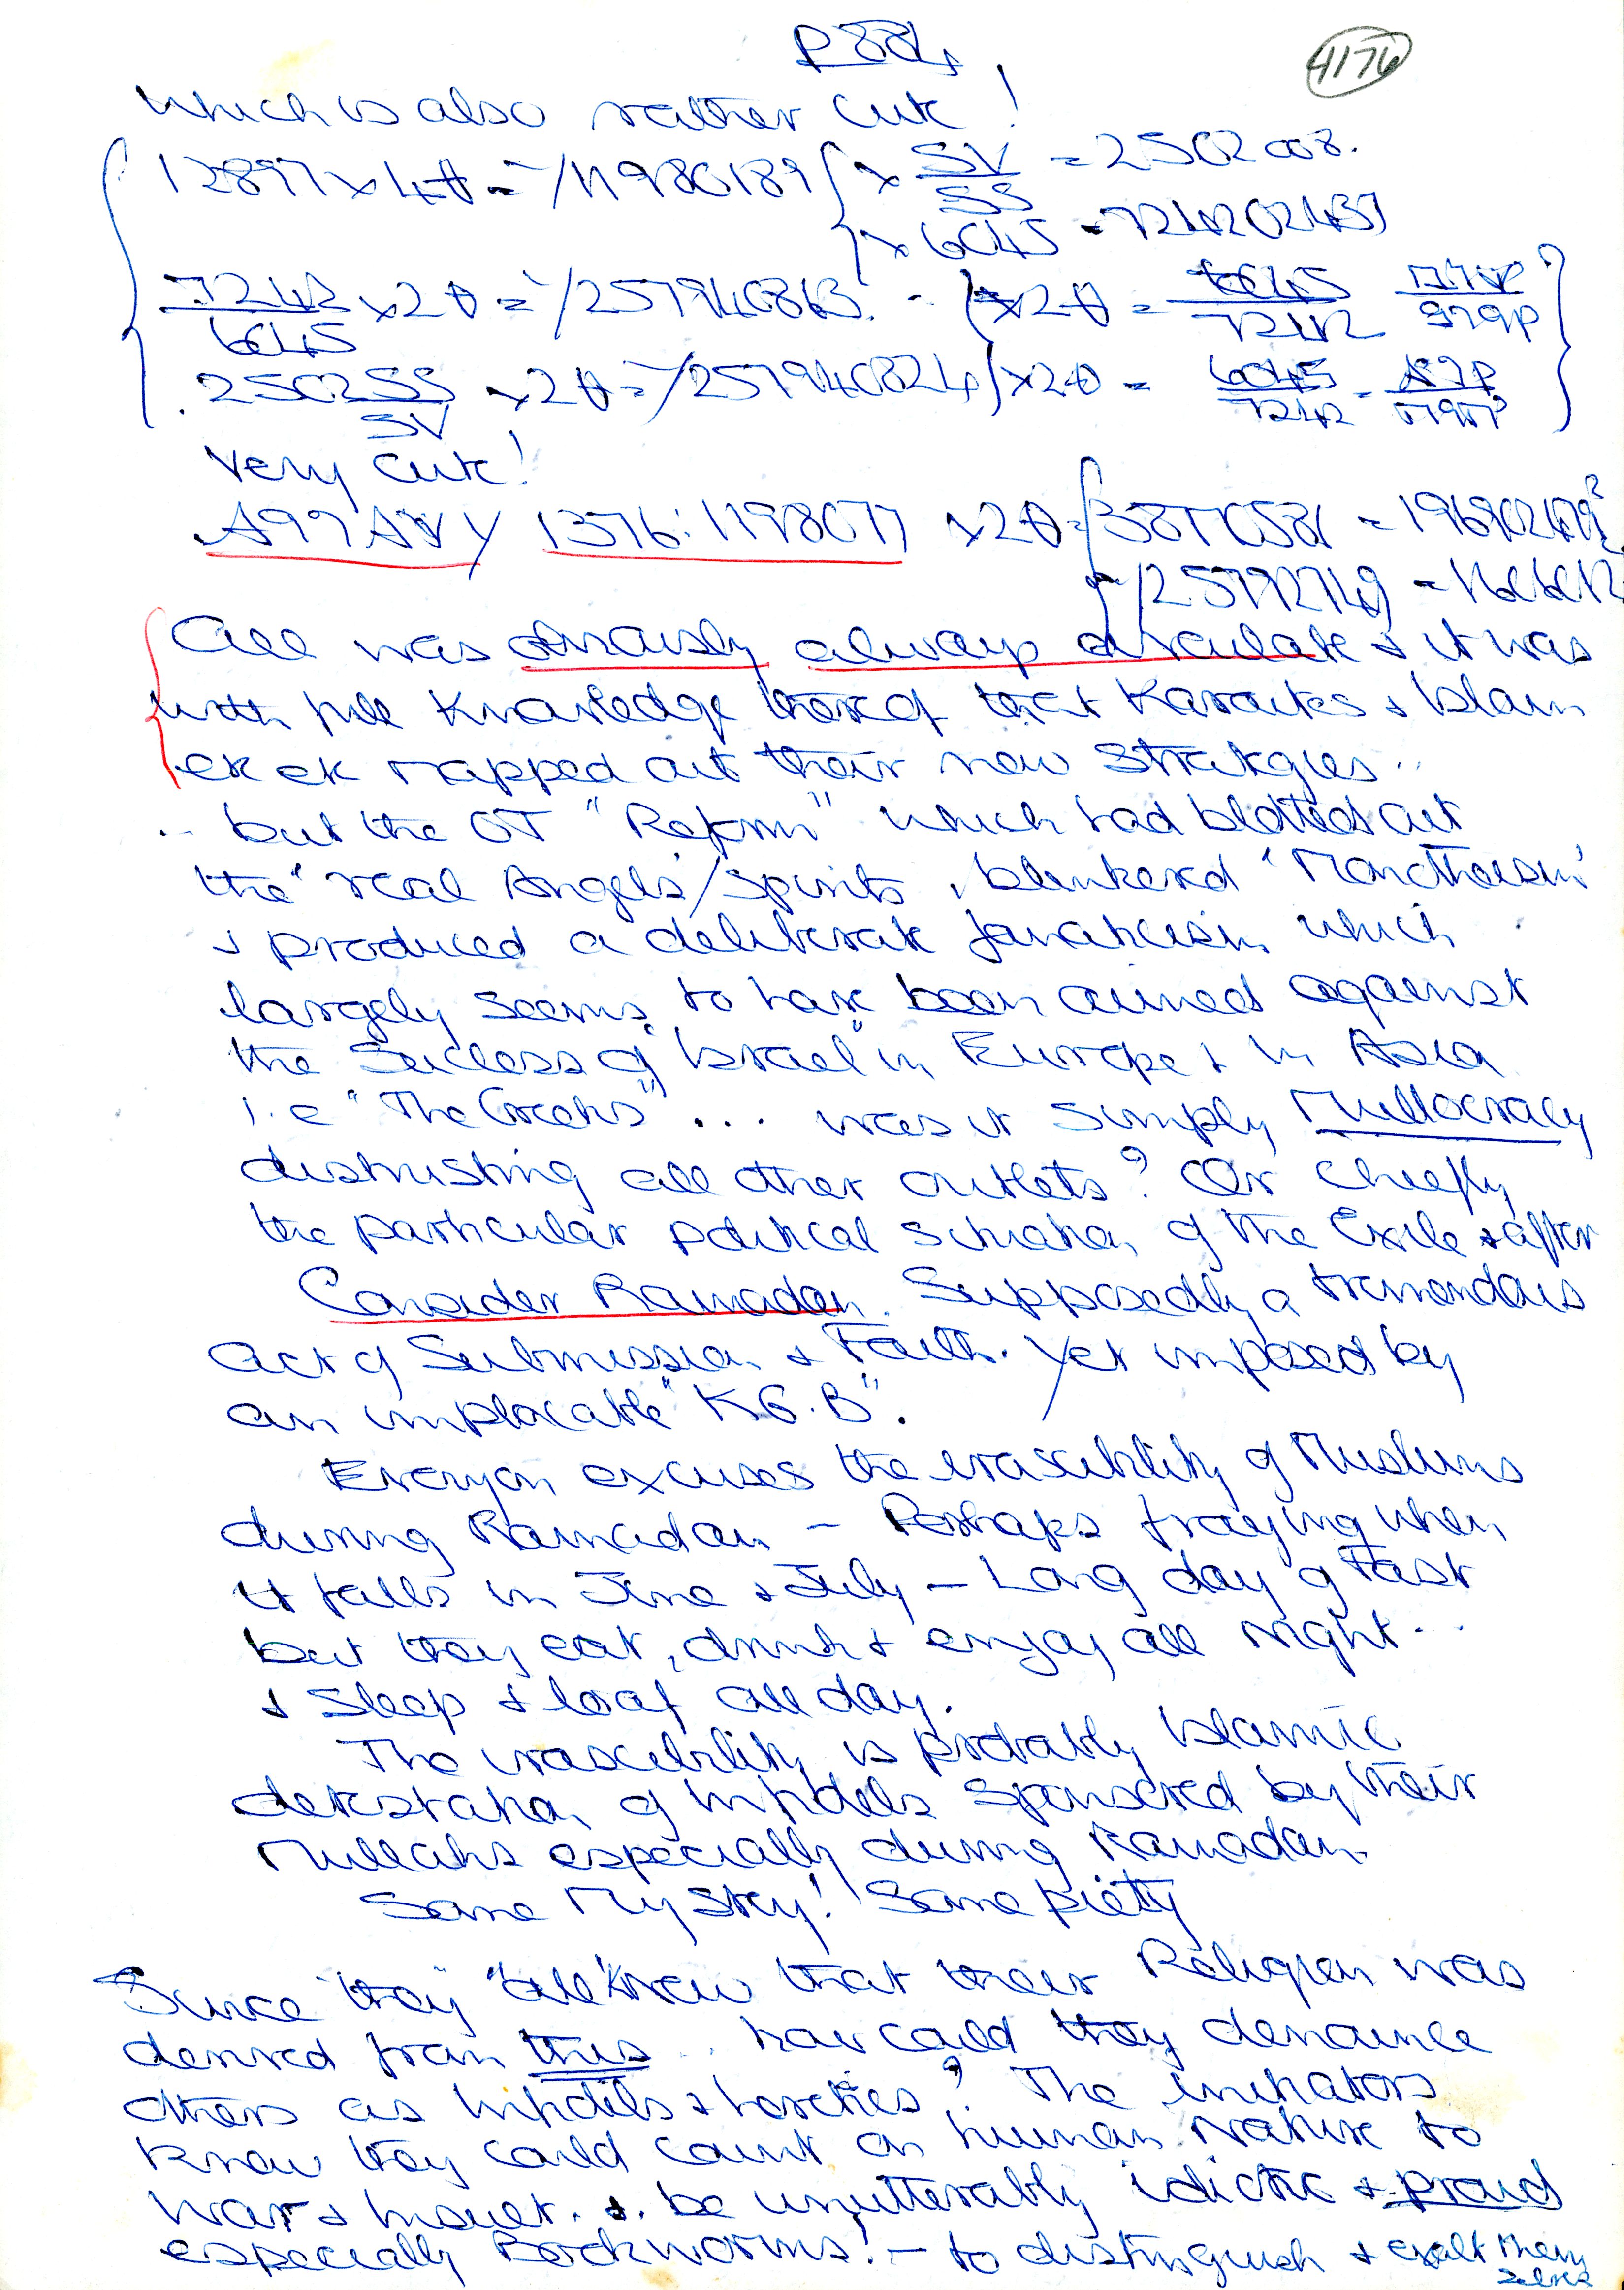 P884
4176
which is also rather cute!
12897 x 4θ = 1/11980189 { x SV/SS = 2502008.
x 6045 = 724202437
7242/6045 x 2θ = 1/257940863 .. x 2θ = 6045/7242
2502 SS/SV x 2θ = 1/257940824 x 2θ = 6045/7242 =
Very cute!
1376: 1198077 x 2θ = 38770581 = 19690249²
= 125792749
All was obviously always articulate & it was
with full knowledge thereof that Karaites & Islam
etc etc mapped out their new strategies ..
.. but the OT "Reform" which had blotted out
the 'real Angels/Spirits, blinkered 'Monotheism'
& produced a deliberate fanaticism which
largely seems to have been aimed against
the success of "Israel" in Europe & in Asia
i.e "The Greeks" ... was it simply Mullocracy
distrusting all other outlets? Or chiefly
the particular political situation of the Exile & after
Consider Ramadan. Supposedly a tremendous
act of Submission & Faith. Yet imposed by
an implacable "K.G.B".
Everyon excuses the irascibility of Muslims
during Ramadan - Perhaps fraying when
it falls in June & July - Long day of Fast
but they eat, drink & enjoy all night ..
& sleep & loaf all day.
The irascibility is probably Islamic
detestation of infidels sponsored by their
Mullahs especially during Ramadan.
Some Mystery! Some piety
Since "they" "all" knew that their Religion was
derived from this .. how could they denounce
others as infidels & heretics? The initiators
knew they could count on human nature to
war & hover. &. be unutterably idiotic & proud
especially Bookworms! - to distinguish & exalt them
selves